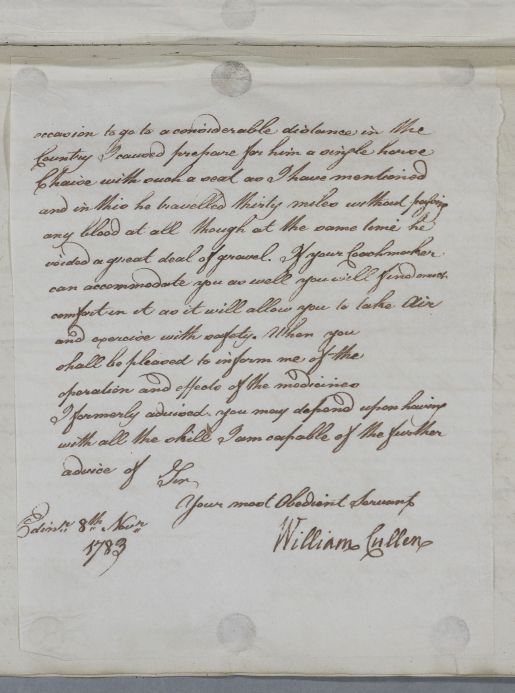 occasion to go to a considerable distance in the
Country I caused prepare for him a single horse
Chaise with such a seat as I have mentioned
and in this he travelled thirty miles without passing
any blood at all though at the same time he
voided a great deal of gravel. If your Coachmaker
can accommodate you as well you will find much
comfort in it as it will allow you to take Air
and exercise with safety. When you
shall be pleased to inform me of the
operation and effects of the medicines
I formerly advised. you may depend upon having
with all the skill I am capable of the further
advice of Sir
Your most Obedient Servant
Edinr. 8th Novr
1783
William Cullen